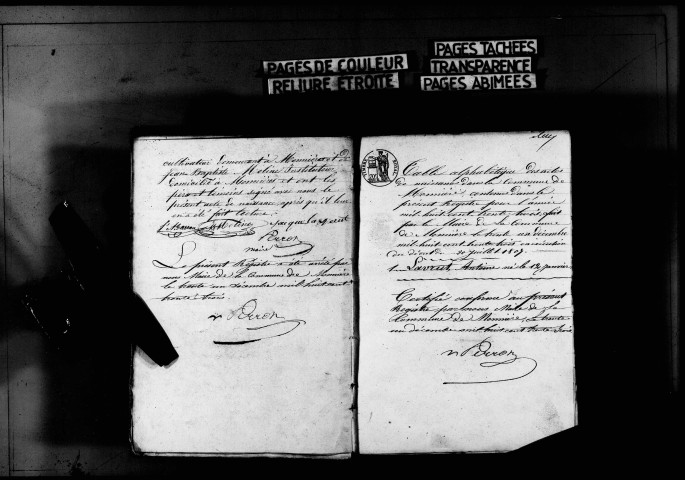 PAGES DE COULEUR
RELIURE ÉTROITE
PAGES TACHEES
TRANSPARENCE
PAGES ABIMEES
cultivateur demeurant à Monnières et
jean Baptiste Moline Instituteur
domicilié à Monnières et ont les
père et temoins signé avec nous le
présent acte de naissance après qu'il leur
en a été fait lecture
Perron
maire
Le présent Registre a été arrêté par
nous Maire de la Commune de Monnières
le trente un décembre mil huit cent
trente trois
Perron
Table alphabétique des actes
de naissances dans la commune de
Monnières contenus dans le
présent Registre pour l'année
mil huit cent trente trois fait
par le Maire de la commune
de Monnières le trente un décembre
mil huit cent trente trois en exécution
du décret du 20 juillet 1807.
1 Lavent Antoine né le 12 janvier
Certifié conforme au présent
Registre par nous Maire de la
Commune de Monnières le trente
un décembre mil huit cent trente trois
Perron